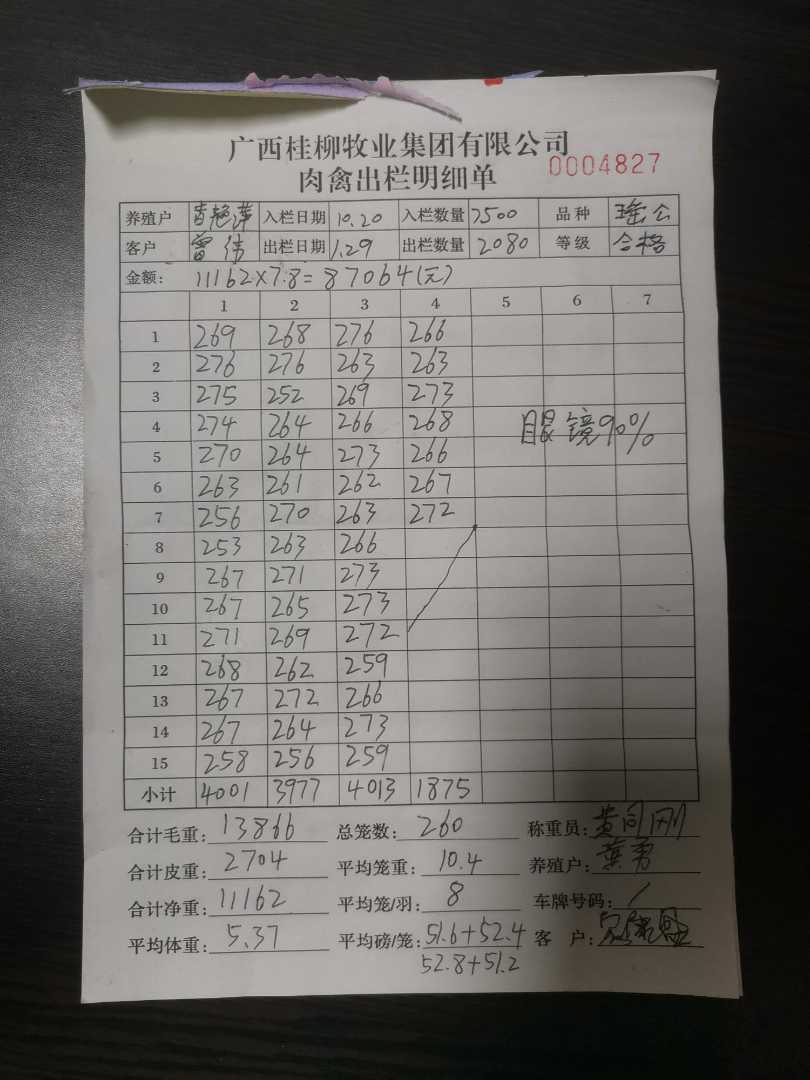 广西桂柳牧业集团有限公司
0004827
肉禽出栏明细单
养殖户 入栏日期 10.20 入栏数量 7500 品种 瑶公
客户 曾伟 出栏日期 1.29 出栏数量 2080 等级 合格
金额: 11162×7.8=87064(元)
1 2 3 4 5 6 7
1 269 268 276 266
2 276 276 263 263
3 275 252 269 273
4 274 264 266 268 眼镜90%
5 270 264 273 266
6 263 261 262 267
7 256 270 263 272
8 253 263 266
9 267 271 273
10 267 265 273
11 271 269 272
12 268 262 259
13 267 272 266
14 267 264 273
15 258 256 259
小计 4001 3977 4013 1875
合计毛重: 13866 总笼数: 260 称重员:
合计皮重: 2704 平均笼重: 10.4 养殖户:
合计净重: 11162 平均笼/羽: 8 车牌号码: /
平均体重: 5.37 平均磅/笼: 51.6+52.4 客 户:
52.8+51.2